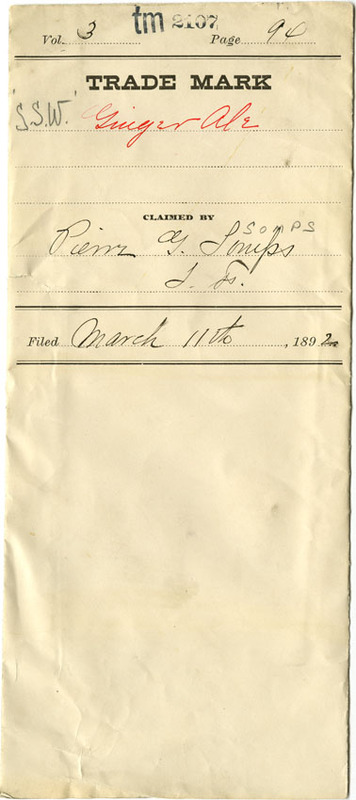 tm 2107
Vol. 3 Page 94
TRADE MARK
"S.S.W." Ginger Ale
CLAIMED BY
SOMPS
Pierre G. Somps
S. F.
Filed March 11th, 1892